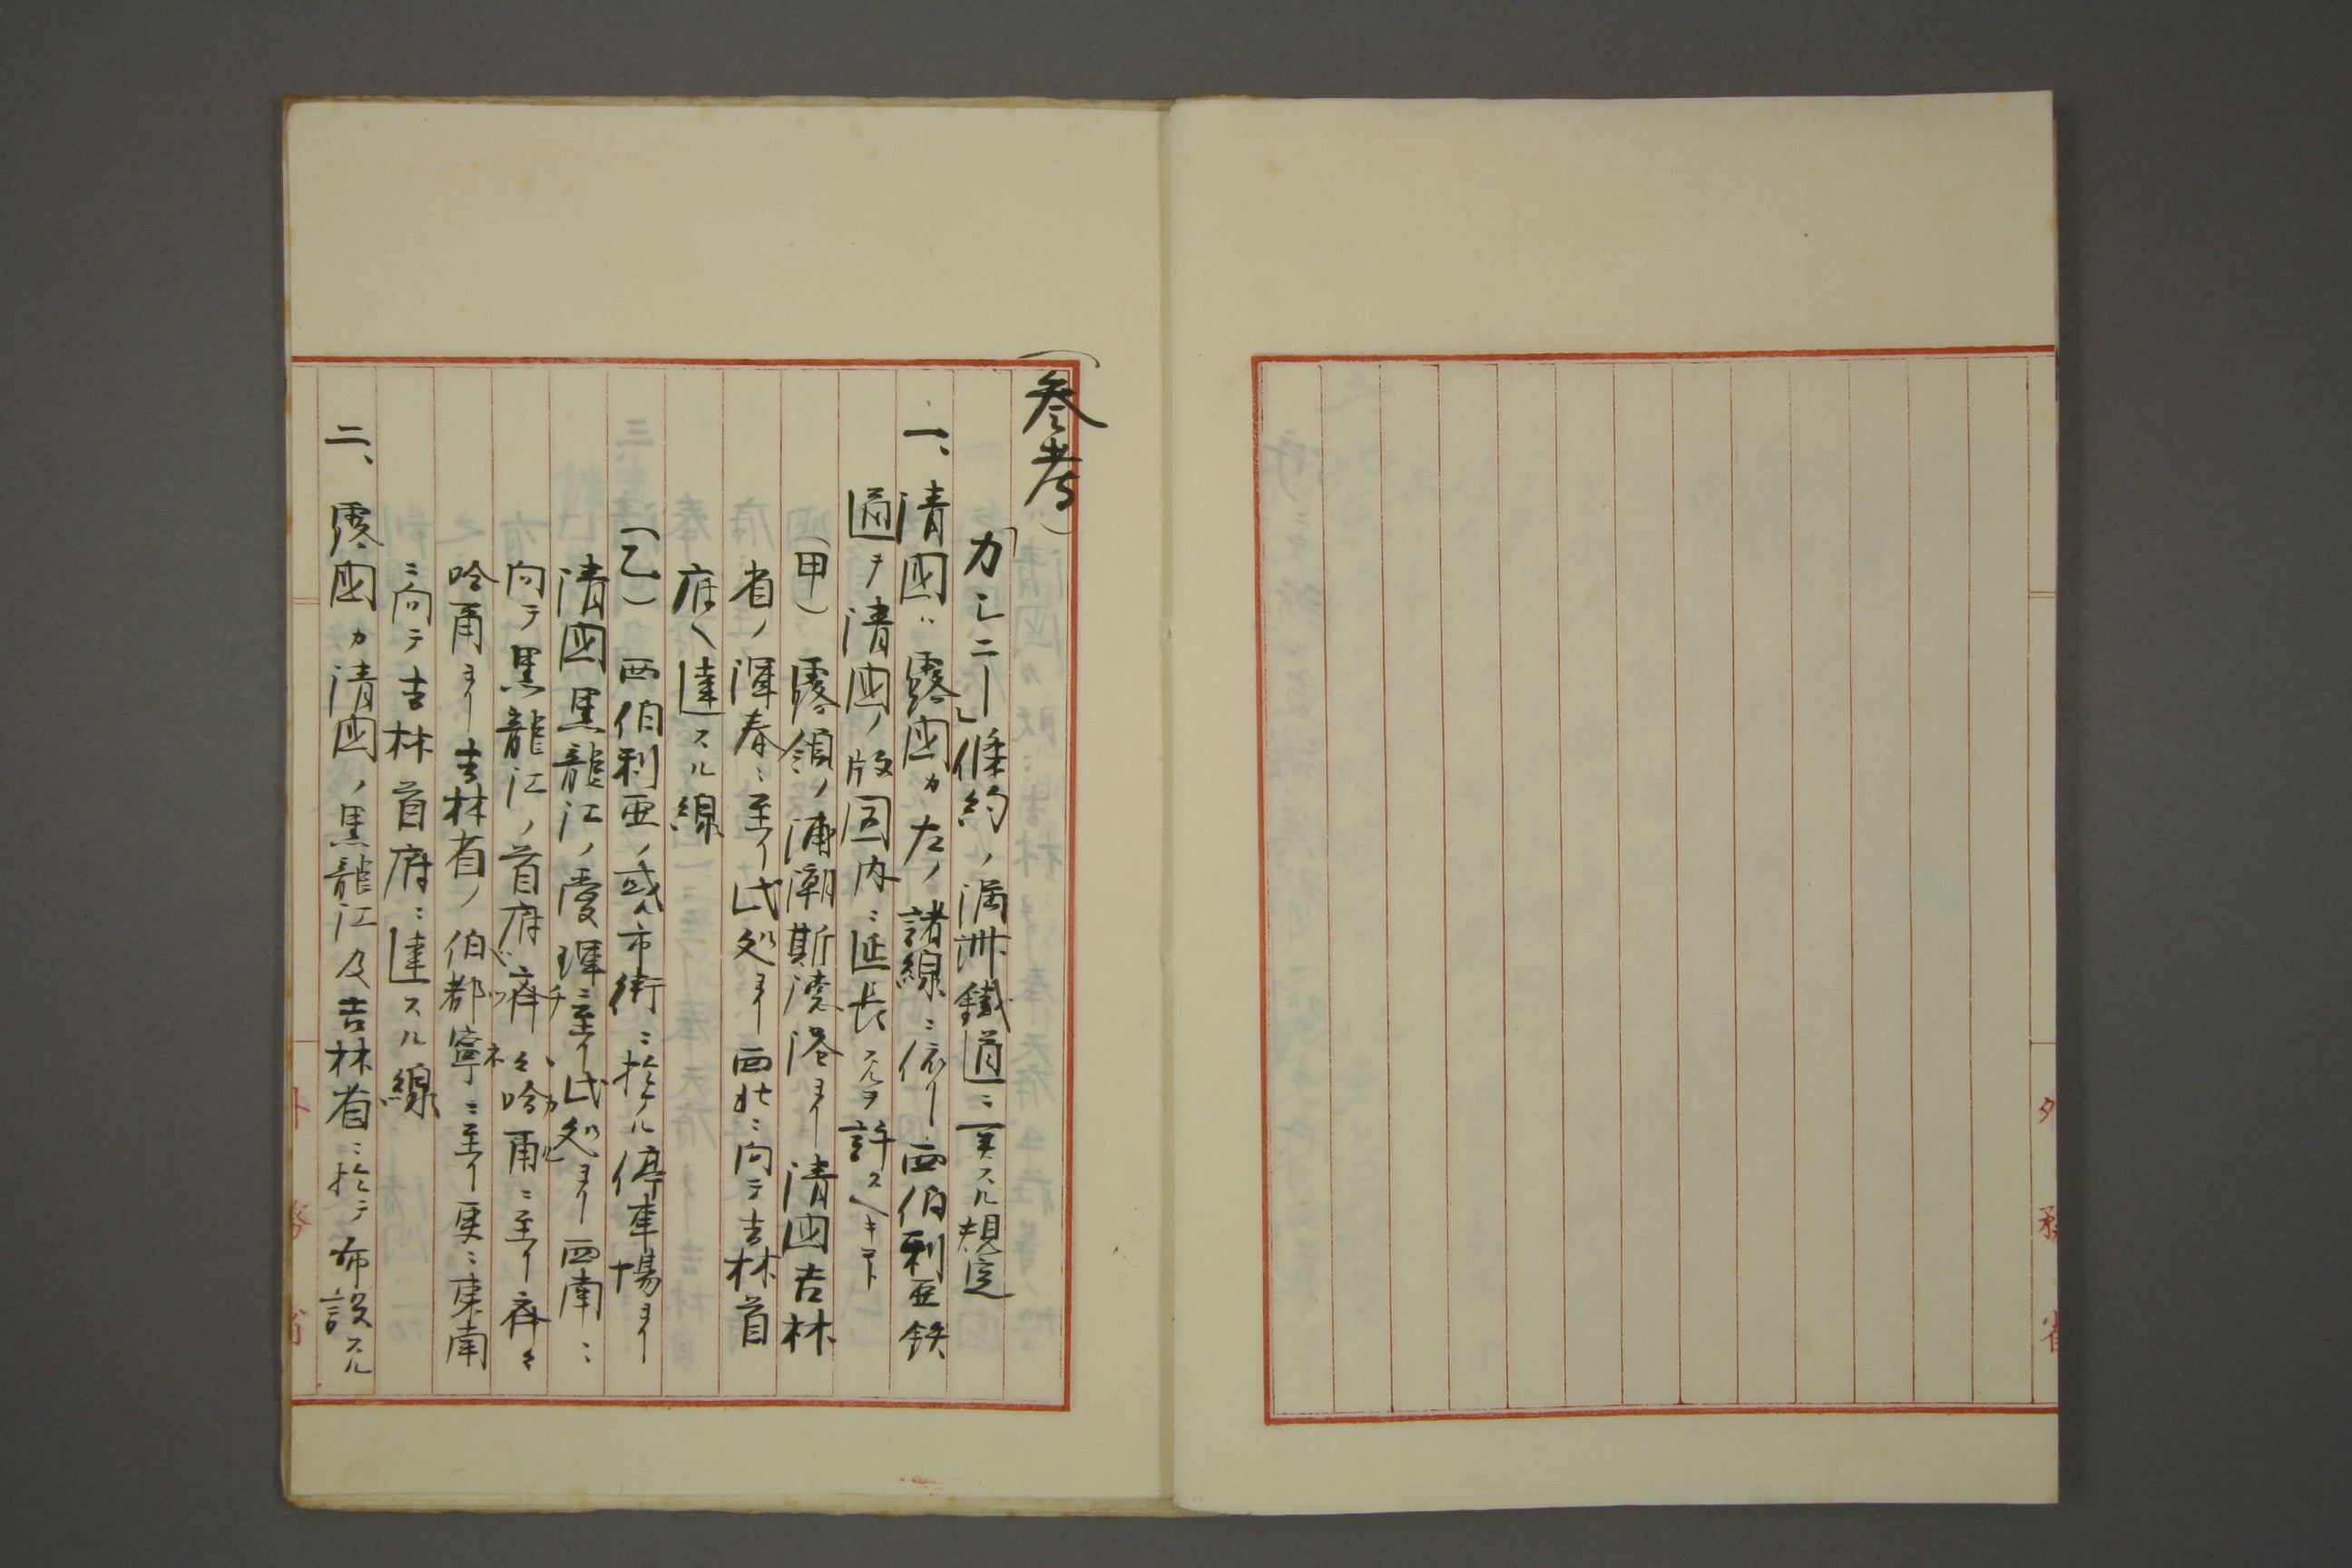 外務省
(参考)
「カシニー」條約ノ満洲鐵道ニ関スル規定
一、清國ハ露國カ左ノ諸線ニ依リ西伯利亜鉄
道ヲ清國ノ版図内ニ延長スルヲ許スヘキコト
(甲)露領ノ浦潮斯徳港ヨリ清國吉林
省ノ渾春ニ至リ此処ヨリ西北ニ向テ吉林首
府ヘ達スル線
(乙)西伯利亜ノ或ル市街ニ於ケル停車場ヨリ
清國黒龍江ノ愛琿ニ至リ此処ヨリ西南ニ
向テ黒龍江ノ首府齊々哈爾ニ至リ齊々
哈爾ヨリ吉林省ノ伯都寧ニ至リ更ニ東南
ニ向テ吉林首府ニ達スル線
二、露國カ清國ノ黒龍江及吉林省ニ於テ布設スル
外務省